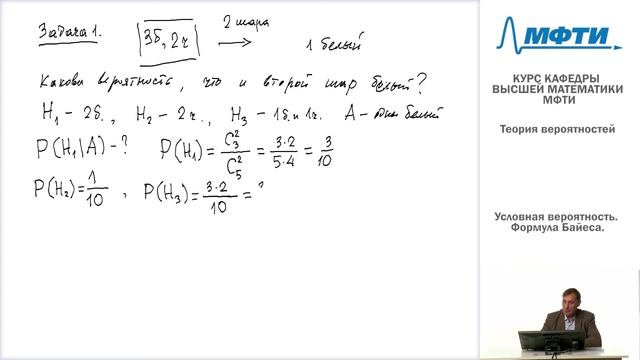 Задача 1. 3б, 2ч 2 шара → 1 белый
Какова вероятность, что и второй шар белый?
H₁ – 2б., H₂ – 2ч., H₃ – 1б. и 1ч. A – один белый
P(H₁|A) – ? P(H₁) = C₃²/C₅² = 3·2/5·4 = 3/10
P(H₂) = 1/10, P(H₃) = 3·2/10 =
МФТИ
КУРС КАФЕДРЫ
ВЫСШЕЙ МАТЕМАТИКИ
МФТИ
Теория вероятностей
Условная вероятность.
Формула Байеса.